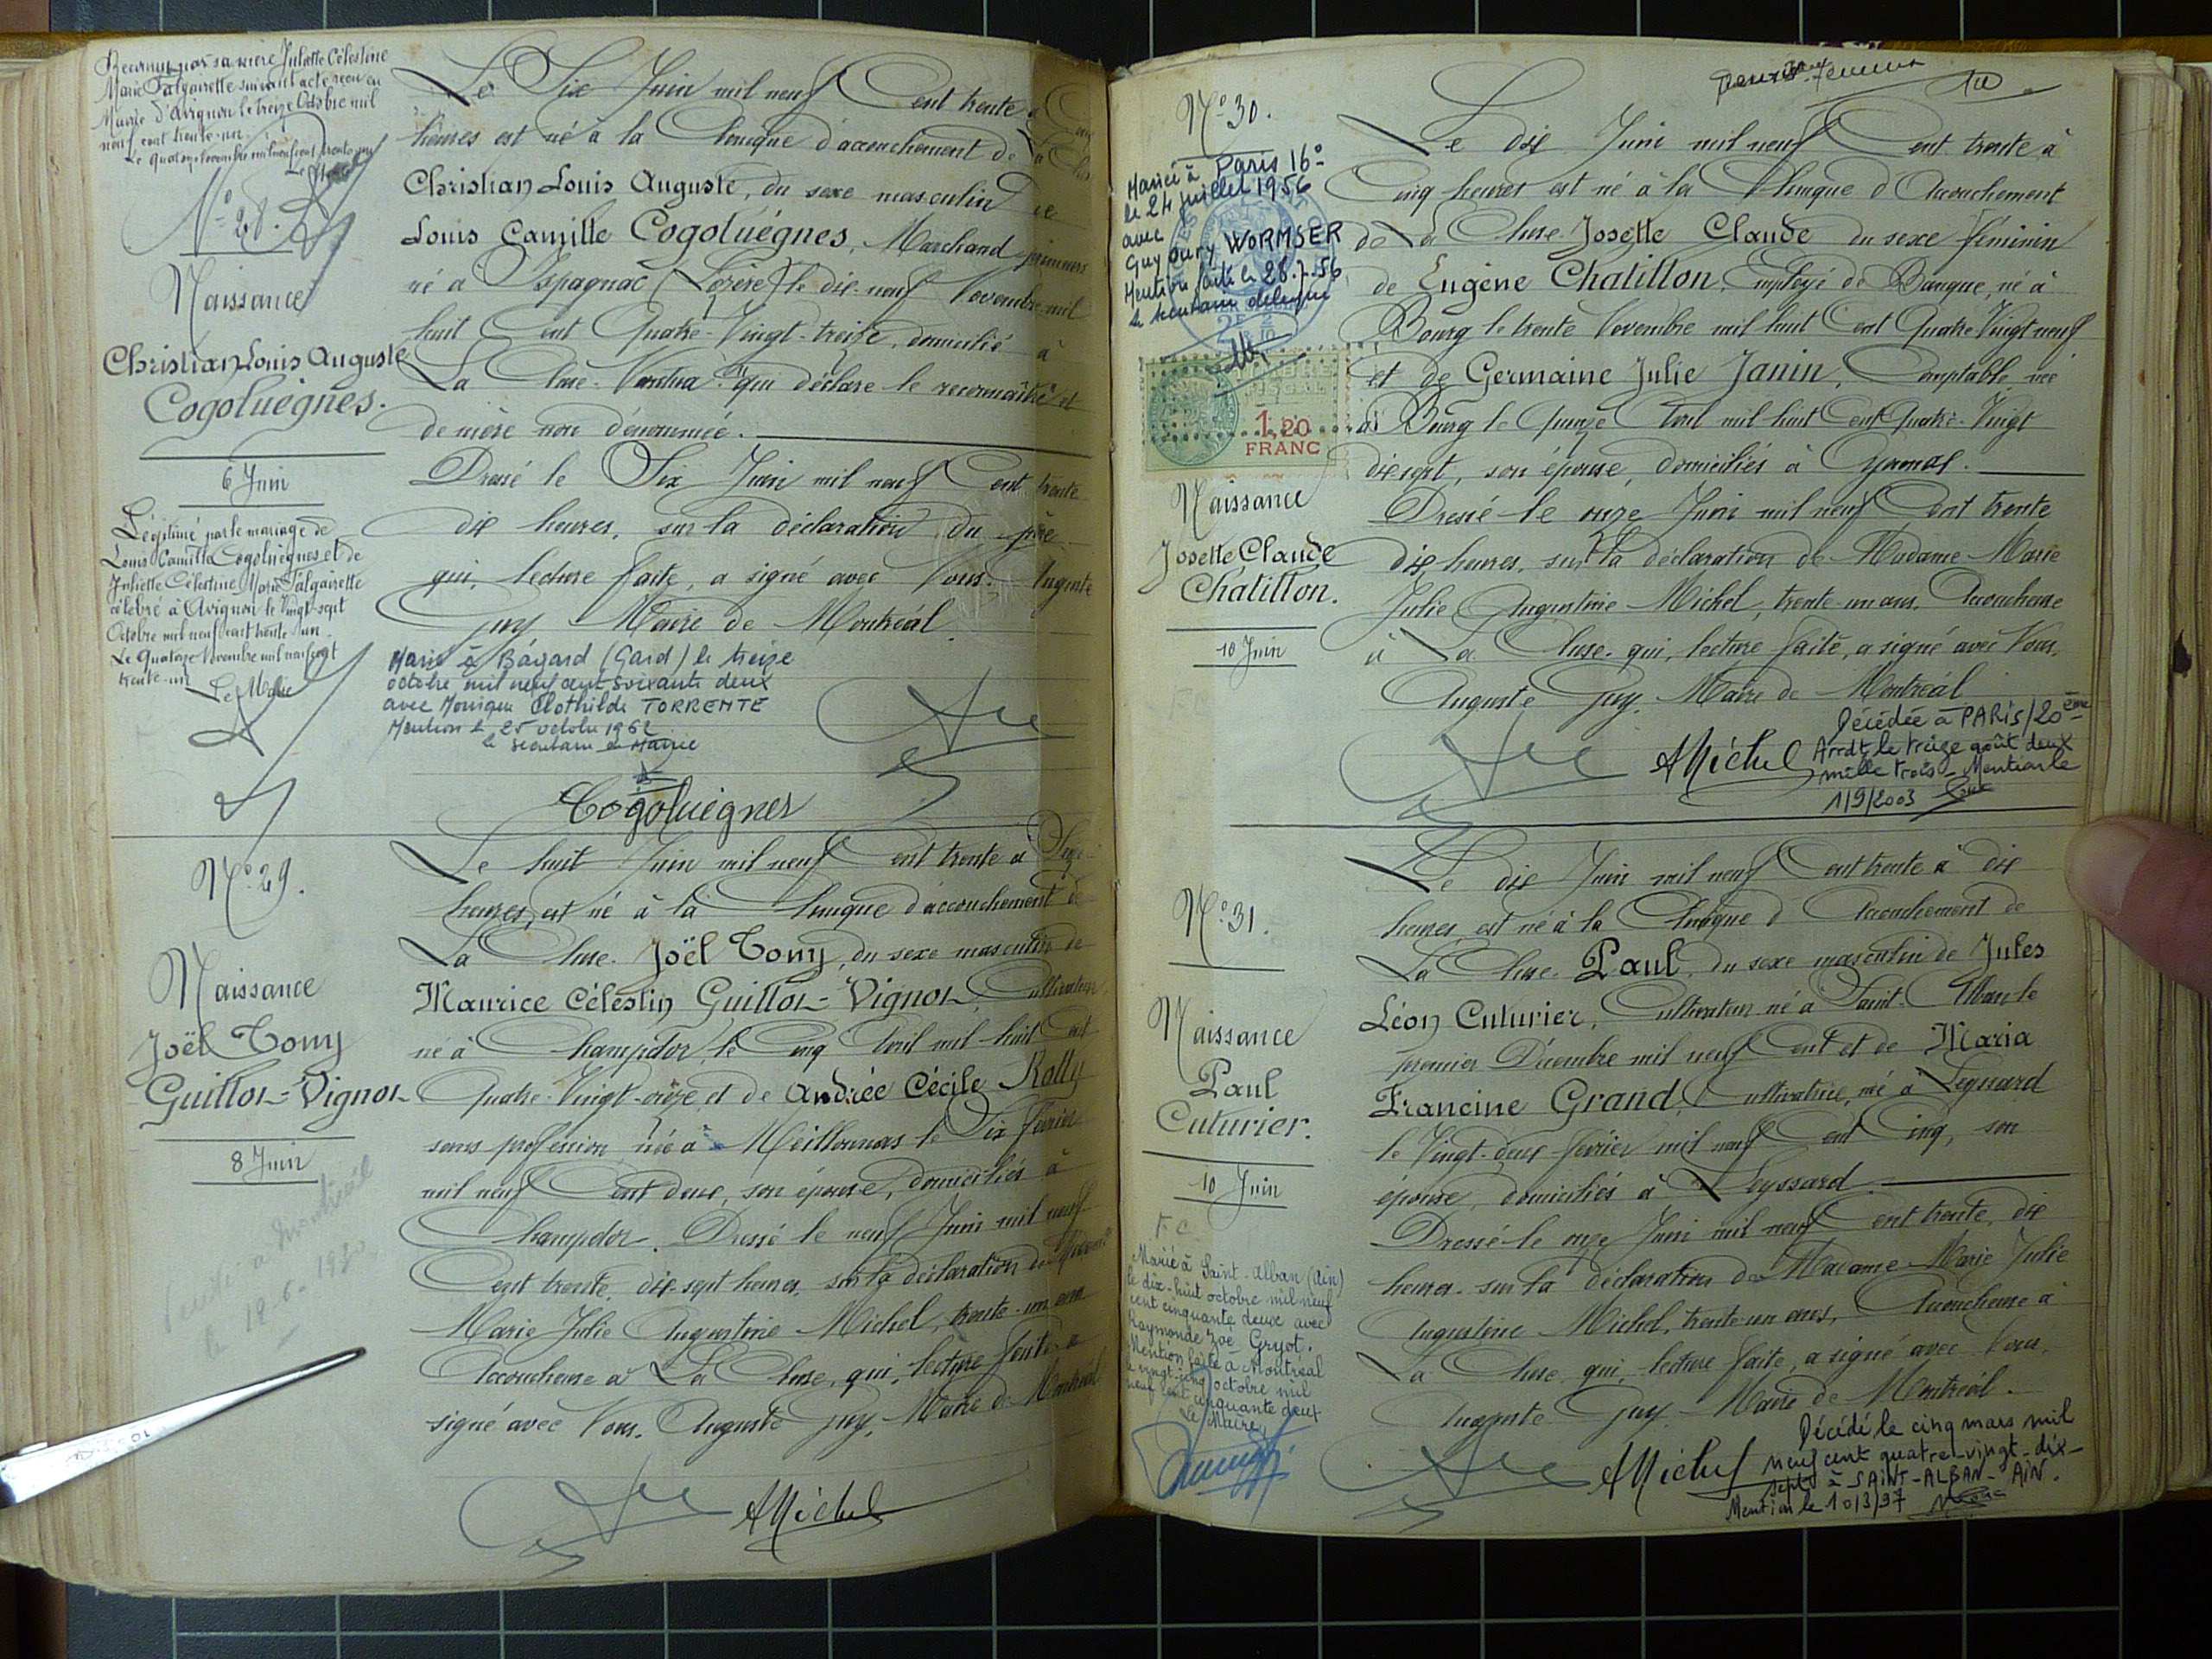 Reconnu par sa mère Juliette Célestine
Marie Falgairette suivant acte reçu en
Mairie d'Avignon le treize Octobre mil
neuf cent trente-un.
Le quatorze Novembre mil neuf cent trente un
Le Maire
N° 28.
Naissance
Christian Louis Auguste
Cogoluégnes.
6 Juin
Légitimé par le mariage de
Louis Camille Cogoluégnes et de
Juliette Célestine Marie Falgairette
célébré à Avignon le Vingt-sept
Octobre mil neuf cent trente un.
Le Quatorze Novembre mil neuf cent
trente-un
Le Maire
Le Six Juin mil neuf Cent trente à
heures est né à la Clinique d'accouchement de La
Christian Louis Auguste, du sexe masculin de
Louis Camille Cogoluégnes, Marchand primeurs
né à Ispagnac (Lozère) le dix-neuf Novembre mil
huit Cent Quatre-Vingt-treize, domicilié à
La Cluse. Nantua. qui déclare le reconnaître et
de mère non dénommée.
Dressé le Six Juin mil neuf Cent trente
dix heures, sur la déclaration du père
qui, lecture faite, a signé avec Nous. Auguste
Guy Maire de Montréal.
Marié à Bágard (Gard) le treize
octobre mil neuf cent soixante deux
avec Monique Clothilde TORRENTE
Mention le 25 octobre 1962
le secrétaire de Mairie
Cogoluégnes
N° 29.
Naissance
Joël Tony
Guillon-Vignon
8 Juin
à Montréal
le 12-6-1930
Le huit Juin mil neuf Cent trente à
heures, est né à la Clinique d'accouchement de
La Cluse. Joël Tony, du sexe masculin de
Maurice Célestin Guillon-Vignon Cultivateur
né à Champdor, le Cinq Avril mil huit Cent
Quatre-Vingt-onze et de Andrée Cécile Rolly
sans profession, née à Meillonnas le Six février
mil neuf Cent deux, son épouse, domiciliés à
Champdor. Dressé le neuf Juin mil neuf
Cent trente, dix-sept heures, sur la déclaration de Madame
Marie Julie Augustine Michel, trente-un ans
Accoucheuse à La Cluse, qui, lecture faite a
signé avec Nous. Auguste Guy, Maire de Montréal
AMichel
N° 30.
Mariée à Paris 16°
le 24 juillet 1956
avec
Guy WORMSER
Mention faite le 28.7.56
le secrétaire délégué
1,20
FRANC
Naissance
Josette Claude
Chatillon.
10 Juin
Le dix Juin mil neuf Cent trente à
Cinq heures est né à la Clinique d'Accouchement
de La Cluse Josette Claude du sexe féminin
de Eugène Chatillon, Employé de Banque, né à
Bourg le trente Novembre mil huit Cent Quatre Vingt neuf
et de Germaine Julie Janin, Comptable, née
à Bourg le Quinze Avril mil huit Cent Quatre-Vingt
dix sept, son épouse, domiciliés à Oyonnax.
Dressé le onze Juin mil neuf Cent trente
dix heures, sur la déclaration de Madame Marie
Julie Augustine Michel, trente-un ans, Accoucheuse
à La Cluse. qui, lecture faite, a signé avec Nous,
Auguste Guy, Maire de Montréal
AMichel
Décédée à PARIS/20ème
Arrdt, le treize août deux
mille trois - Mention le
1/9/2003
N° 31.
Naissance
Paul
Cuturier.
10 Juin
Marié à Saint-Alban (Ain)
le dix-huit octobre mil neuf
cent cinquante deux avec
Raymonde Zoé Gryot.
Mention faite à Montréal
le vingt-cinq octobre mil
neuf cent cinquante deux
Le Maire,
Le dix Juin mil neuf Cent trente à dix
heures est né à la Clinique d'Accouchement de
La Cluse. Paul, du sexe masculin de Jules
Léon Cuturier, Cultivateur né à Saint-Alban le
premier Décembre mil neuf Cent et de Maria
Francine Grand, Cultivatrice, né à Leyssard
le Vingt-deux février mil neuf Cent Cinq, son
épouse, domiciliés à Leyssard.
Dressé le onze Juin mil neuf Cent trente, dix
heures. sur la déclaration de Madame Marie Julie
Augustine Michel, trente-un ans, Accoucheuse à
La Cluse, qui, lecture faite, a signé avec Nous,
Auguste Guy Maire de Montréal.
AMichel
Décédé le cinq mars mil
neuf cent quatre-vingt-dix-
sept à SAINT-ALBAN-AIN.
Mention le 10/3/97